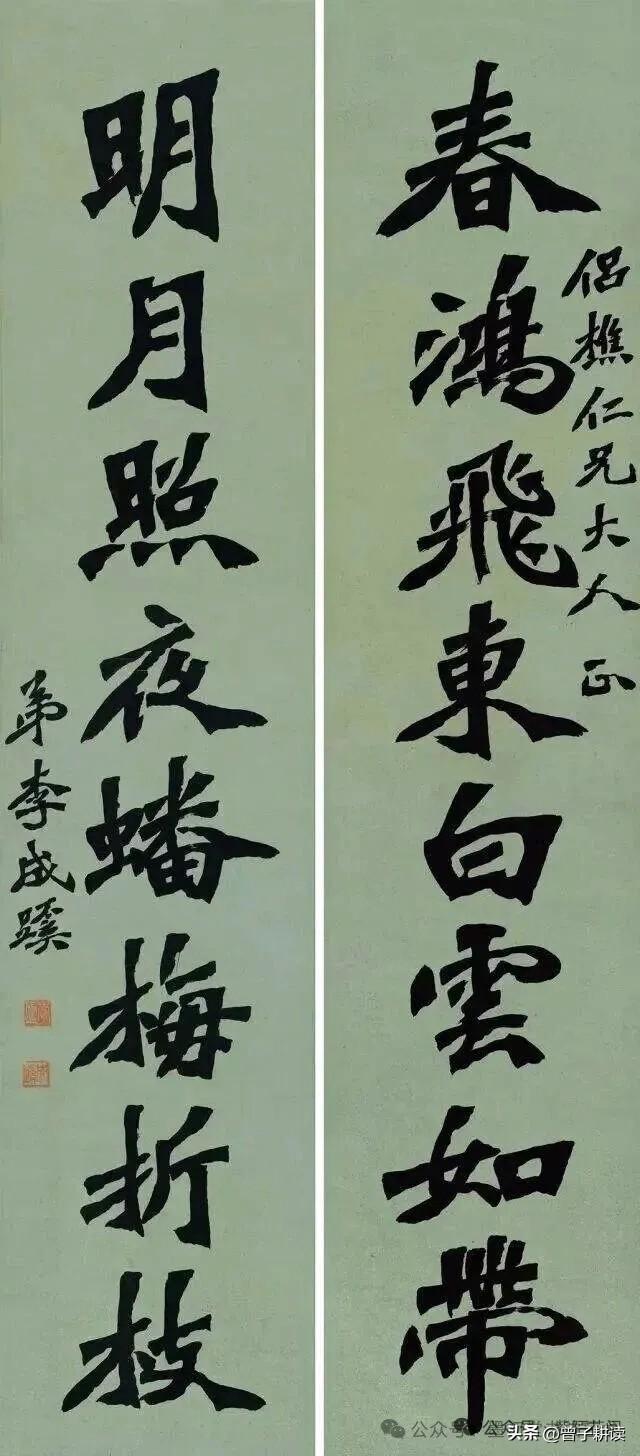 侶樵仁兄大人 正
春鴻飛東白雲如帶
明月照夜蟠梅折枝
弟李成蹊
公众号
头条 @曾子耕读